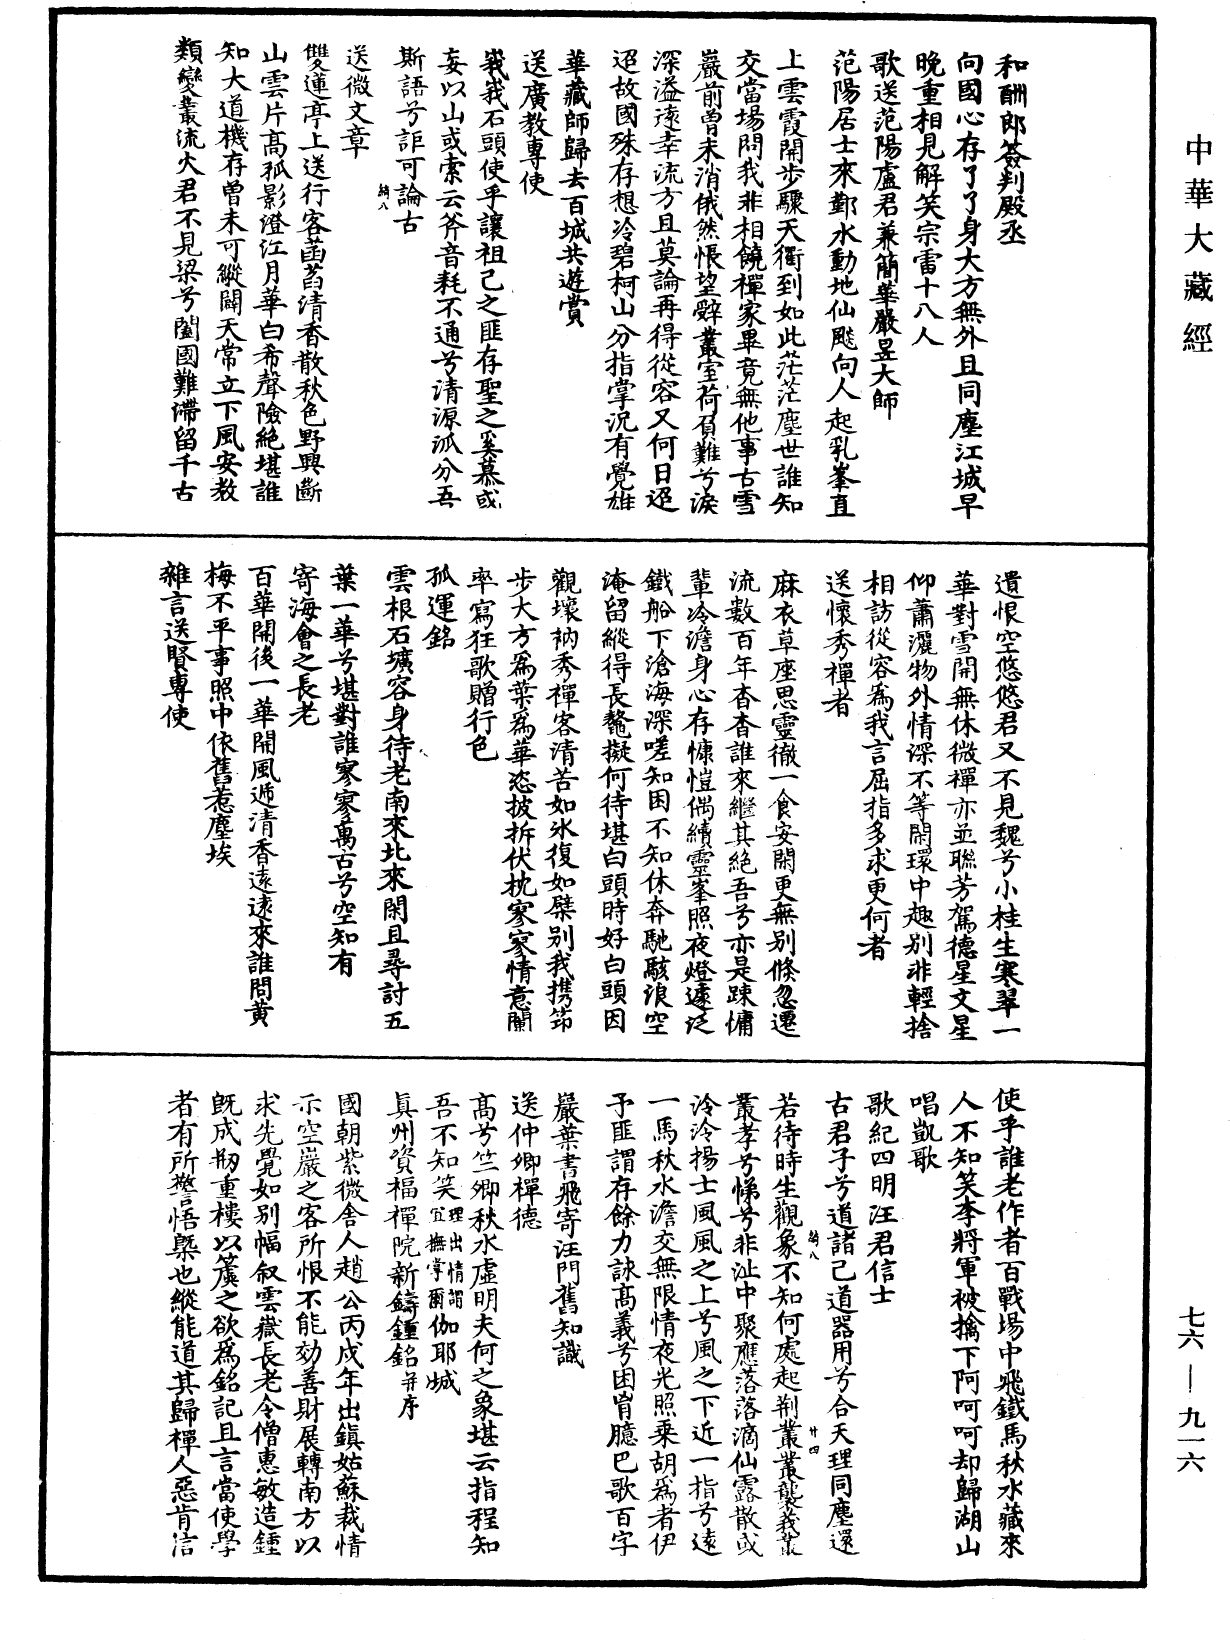 中華大藏經
和酬郎簽判殿丞
向國心存了了身大方無外且同塵江城早
晚重相見解笑宗雷十八人
歌送范陽盧君兼簡華嚴昱大師
范陽居士來鄞水動地仙飈向人起乳峯直
上雲霞開步驟天衢到如此茫茫塵世誰知
交當場問我非相饒禪家畢竟無他事古雪
巖前曾未消俄然悵望辭叢室荷負難兮淚
深溢遠幸流方且莫論再得從容又何日迢
迢故國殊存想冷碧柯山分指掌況有覺雄
華藏師歸去百城共遊賞
送廣教專使
峩峩石頭使乎讓祖己之匪存聖之奚慕或
妄以山或索云斧音耗不通兮清源派分吾
斯語兮詎可論古
綺八
送微文章
雙蓮亭上送行客菡萏清香散秋色野興斷
山雲片高孤影澄江月華白希聲險絕堪誰
知大道機存曾未可縱闢天常立下風安教
類變叢流火君不見梁兮闔國難滯留千古
遺恨空悠悠君又不見魏兮小桂生寒翠一
華對雪開無休微禪亦並聯芳駕德星文星
仰蕭灑物外情深不等閑環中趣別非輕捨
相訪從容為我言屈指多求更何者
送懷秀禪者
麻衣草座思靈徹一食安閑更無別倏忽遷
流數百年杳杳誰來繼其絕吾兮亦是踈慵
輩冷澹身心存慷愷偶續靈峯照夜燈遽泛
鐵船下滄海深嗟知困不知休奔馳駭浪空
淹留縱得長鼇擬何待堪白頭時好白頭因
觀壞衲秀禪客清苦如氷復如檗別我携筇
步大方為葉為華恣披拆伏枕寥寥情意闌
率寫狂歌贈行色
孤運銘
雲根石壙容身待老南來北來閑且尋討五
葉一華兮堪對誰寥寥萬古兮空知有
寄海會之長老
百華開後一華開風遞清香遠遠來誰問黃
梅不平事照中依舊惹塵埃
雜言送賢專使
使乎誰老作者百戰場中飛鐵馬秋水藏來
人不知笑李將軍被擒下阿呵呵却歸湖山
唱凱歌
歌紀四明汪君信士
古君子兮道諸己道器用兮合天理同塵還
若待時生觀象不知何處起荆叢叢襲義叢
綺八
廿四
叢孝兮悌兮非沚中聚應落落滴仙露散或
泠泠揚士風風之上兮風之下近一指兮遠
一馬秋水澹交無限情夜光照乘胡為者伊
予匪謂存餘力詠高義兮困胷臆巴歌百字
嚴葉書飛寄汪門舊知識
送仲卿禪德
高兮竺卿秋水虛明夫何之象堪云指程知
吾不知笑理出情謂宜撫掌爾伽耶城
眞州資福禪院新鑄鍾銘并序
國朝紫微舍人趙公丙戌年出鎮姑蘇裁情
示空巖之客所恨不能効善財展轉南方以
求先覺如別幅叙雲嶽長老令僧惠敏造鍾
既成剏重樓以簴之欲為銘記且言當使學
者有所警悟槩也縱能道其歸禪人惡肯信
七六—九一六